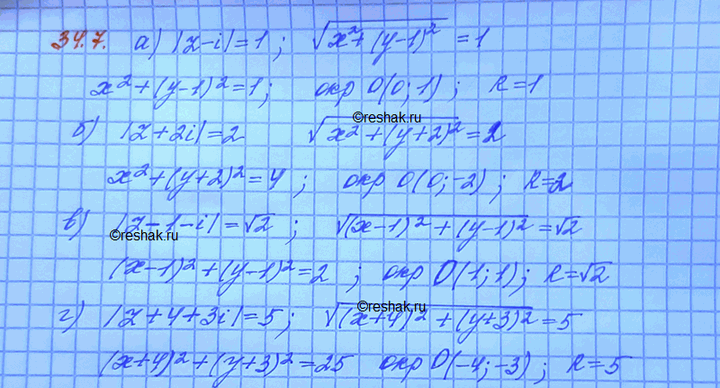 34.7. а) |z-i|=1 ; √(x²+(y-1)²) =1
x²+(y-1)²=1; окр O(0;1) ; R=1
©reshak.ru
б) |z+2i|=2 √(x²+(y+2)²)=2
x²+(y+2)²=4 ; окр O(0;-2) ; R=2
в) |z-1-i|=√2 ; √((x-1)²+(y-1)²)=√2
©reshak.ru
(x-1)²+(y-1)²=2 ; окр O(1;1); R=√2
©reshak.ru
г) |z+4+3i|=5; √((x+4)²+(y+3)²)=5
(x+4)²+(y+3)²=25 окр O(-4;-3) ; R=5